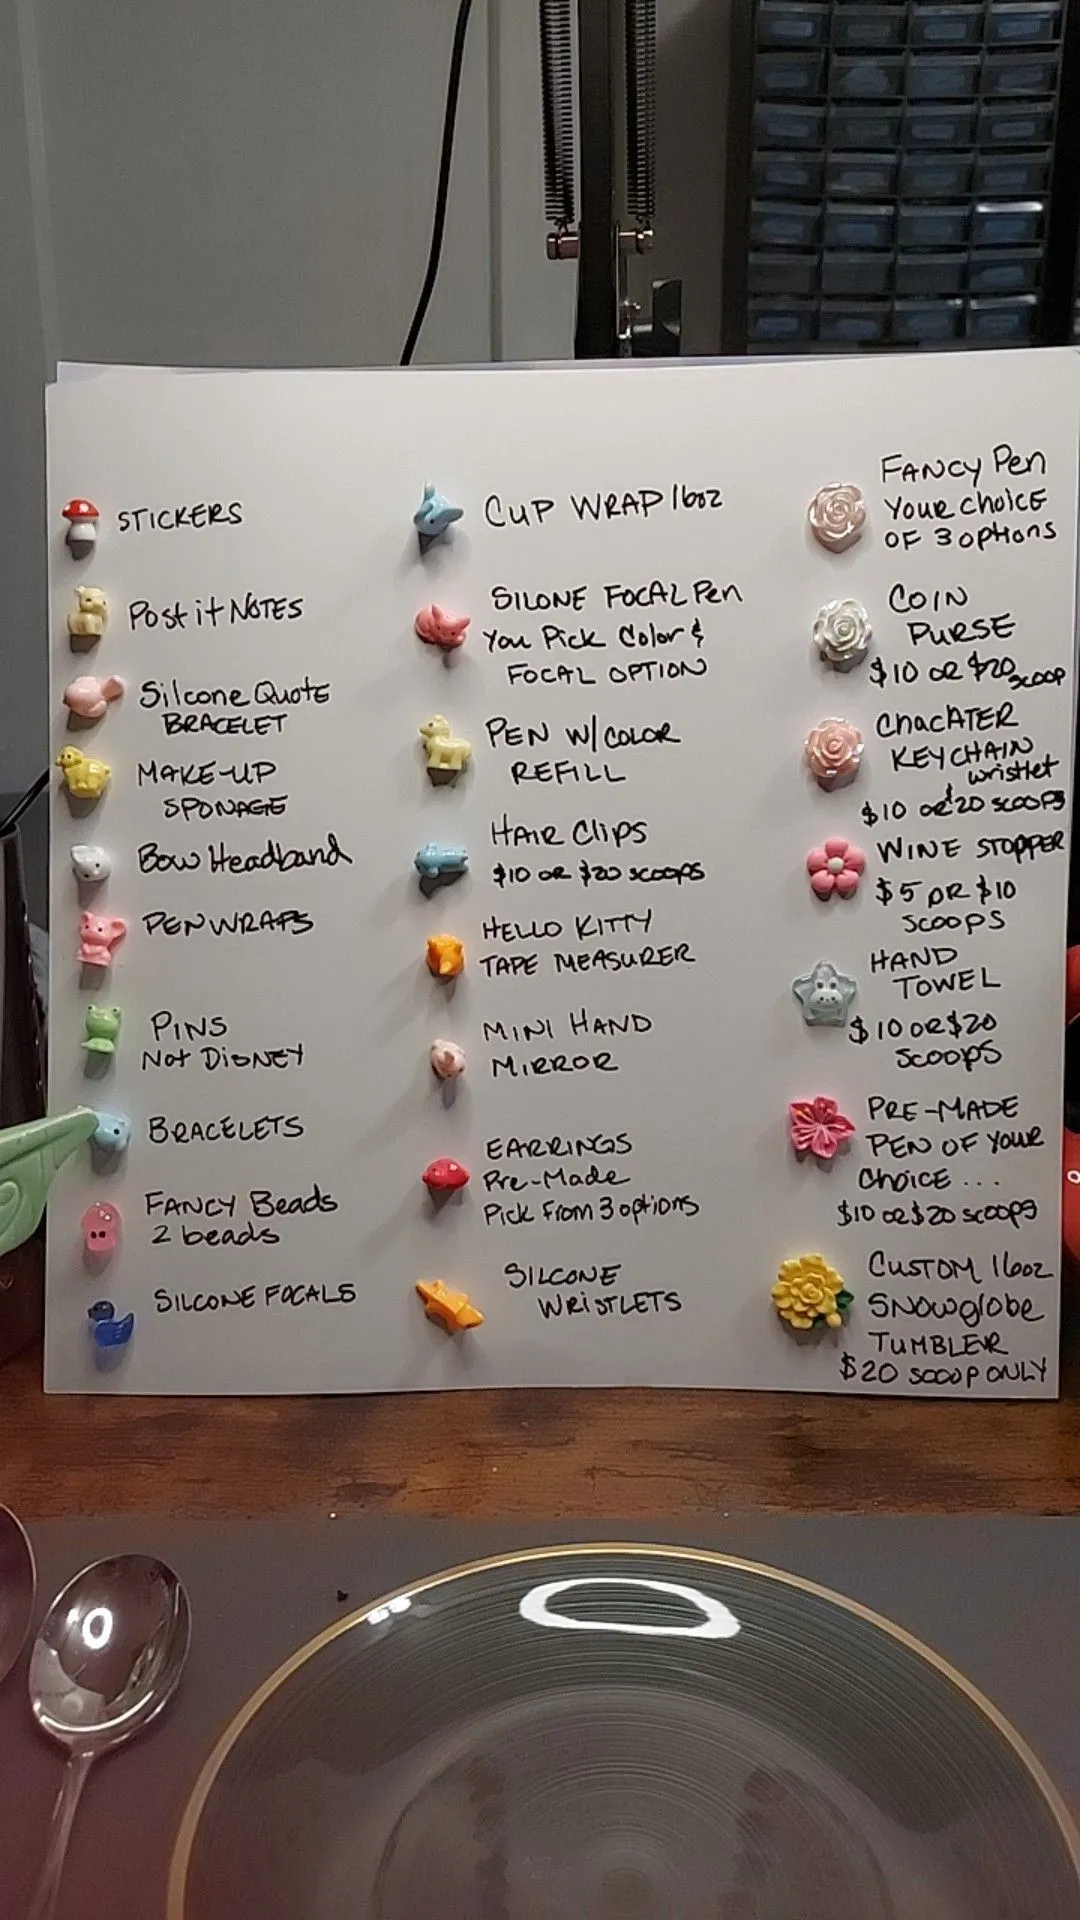 STICKERS
Post it NOTES
Silcone Quote
BRACELET
MAKE-UP
SPONAGE
Bow Headband
PEN WRAPS
PINS
Not DISNEY
BRACELETS
FANCY Beads
2 beads
SILCONE FOCALS
CUP WRAP 16oz
SILONE FOCAL Pen
You Pick Color &
FOCAL OPTION
PEN W/COLOR
REFILL
HAIR Clips
$10 OR $20 SCOOPS
HELLO KITTY
TAPE MEASURER
MINI HAND
MIRROR
EARRINGS
Pre-Made
Pick from 3 options
SILCONE
WRISTLETS
FANCY Pen
YOUR CHOICE
OF 3 options
COIN
PURSE
$10 OR $20 SCOOP
ChacATER
KEYCHAIN
wristlet
$10 or $20 SCOOPS
WINE STOPPER
$5 OR $10
SCOOPS
HAND
TOWEL
$10 OR $20
SCOOPS
PRE-MADE
PEN OF YOUR
CHOICE ...
$10 OR $20 SCOOPS
CUSTOM 16oz
SNOWglobe
TUMBLER
$20 SCOOP ONLY